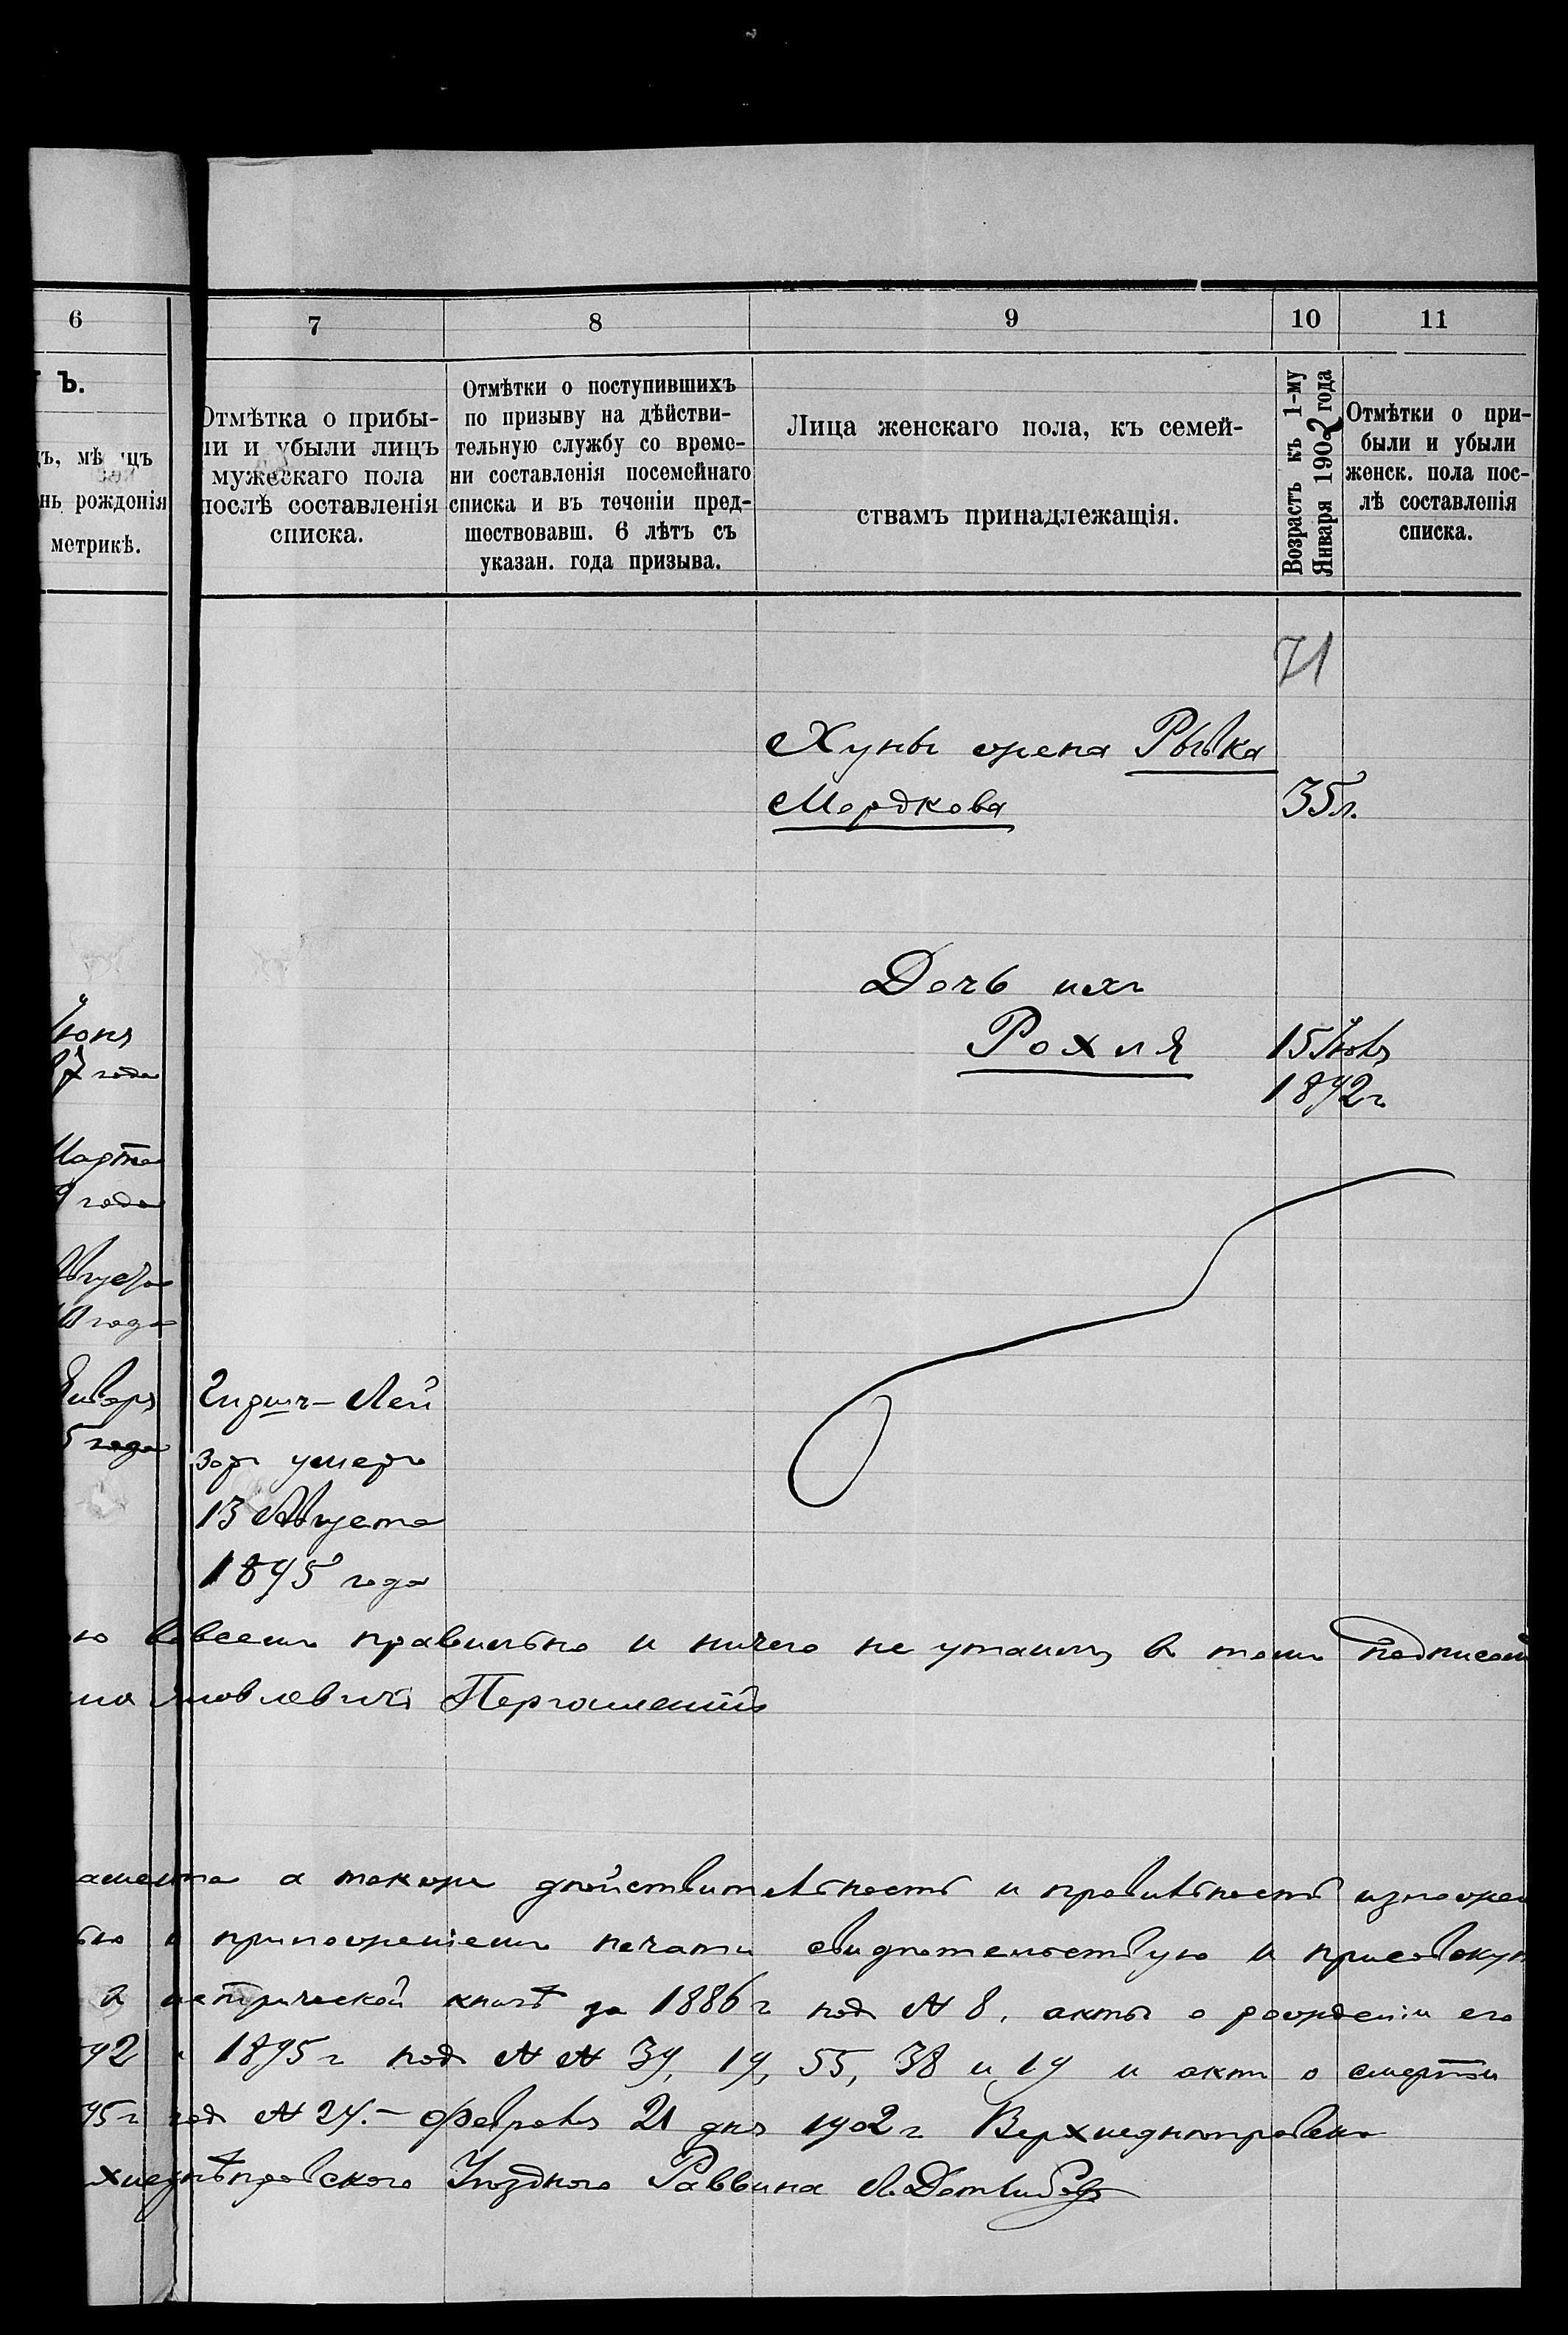 6
7
8
9
10
11
ъ.
Отмѣтка о прибы-
ли и убыли лицъ
мужескаго пола
послѣ составленія
списка.
Отмѣтки о поступившихъ
по призыву на дѣйстви-
тельную службу со време-
ни составленія посемейнаго
списка и въ теченіи пред-
шествовавш. 6 лѣтъ съ
указан. года призыва.
Лица женскаго пола, къ семей-
ствамъ принадлежащія.
Возрастъ къ 1-му
Января 1902 года
Отмѣтки о при-
были и убыли
женск. пола пос-
лѣ составленія
списка.
рожденія
метрикѣ.
71
Хуны жена Рывка
Мордкова 35 л.
Дочь ихъ
Рохля 15 Іюля
1892 г
Іюня
87 года
Марта
9 года
Августа
года
Января
5 года
Гиршъ-Лей
зоръ умеръ
13 Августа
1895 года
ю вовсемъ правильно и ничего не утаилъ въ томъ подписом
Яковлевичъ Пергаментъ
амента а также дѣйствительность и правильность изложен
приложеніемъ печати свидѣтельствую и присовокуп
въ метрической книгѣ за 1886 г подъ № 8, акты о рожденіи его
92 и 1895 г подъ №№ 39, 19, 55, 38 и 19 и актъ о смерти
95 г подъ № 24.- Февраля 21 дня 1902 г Верхнеднѣпровскъ
хнеднѣпровского Уѣздного Раввина Л.